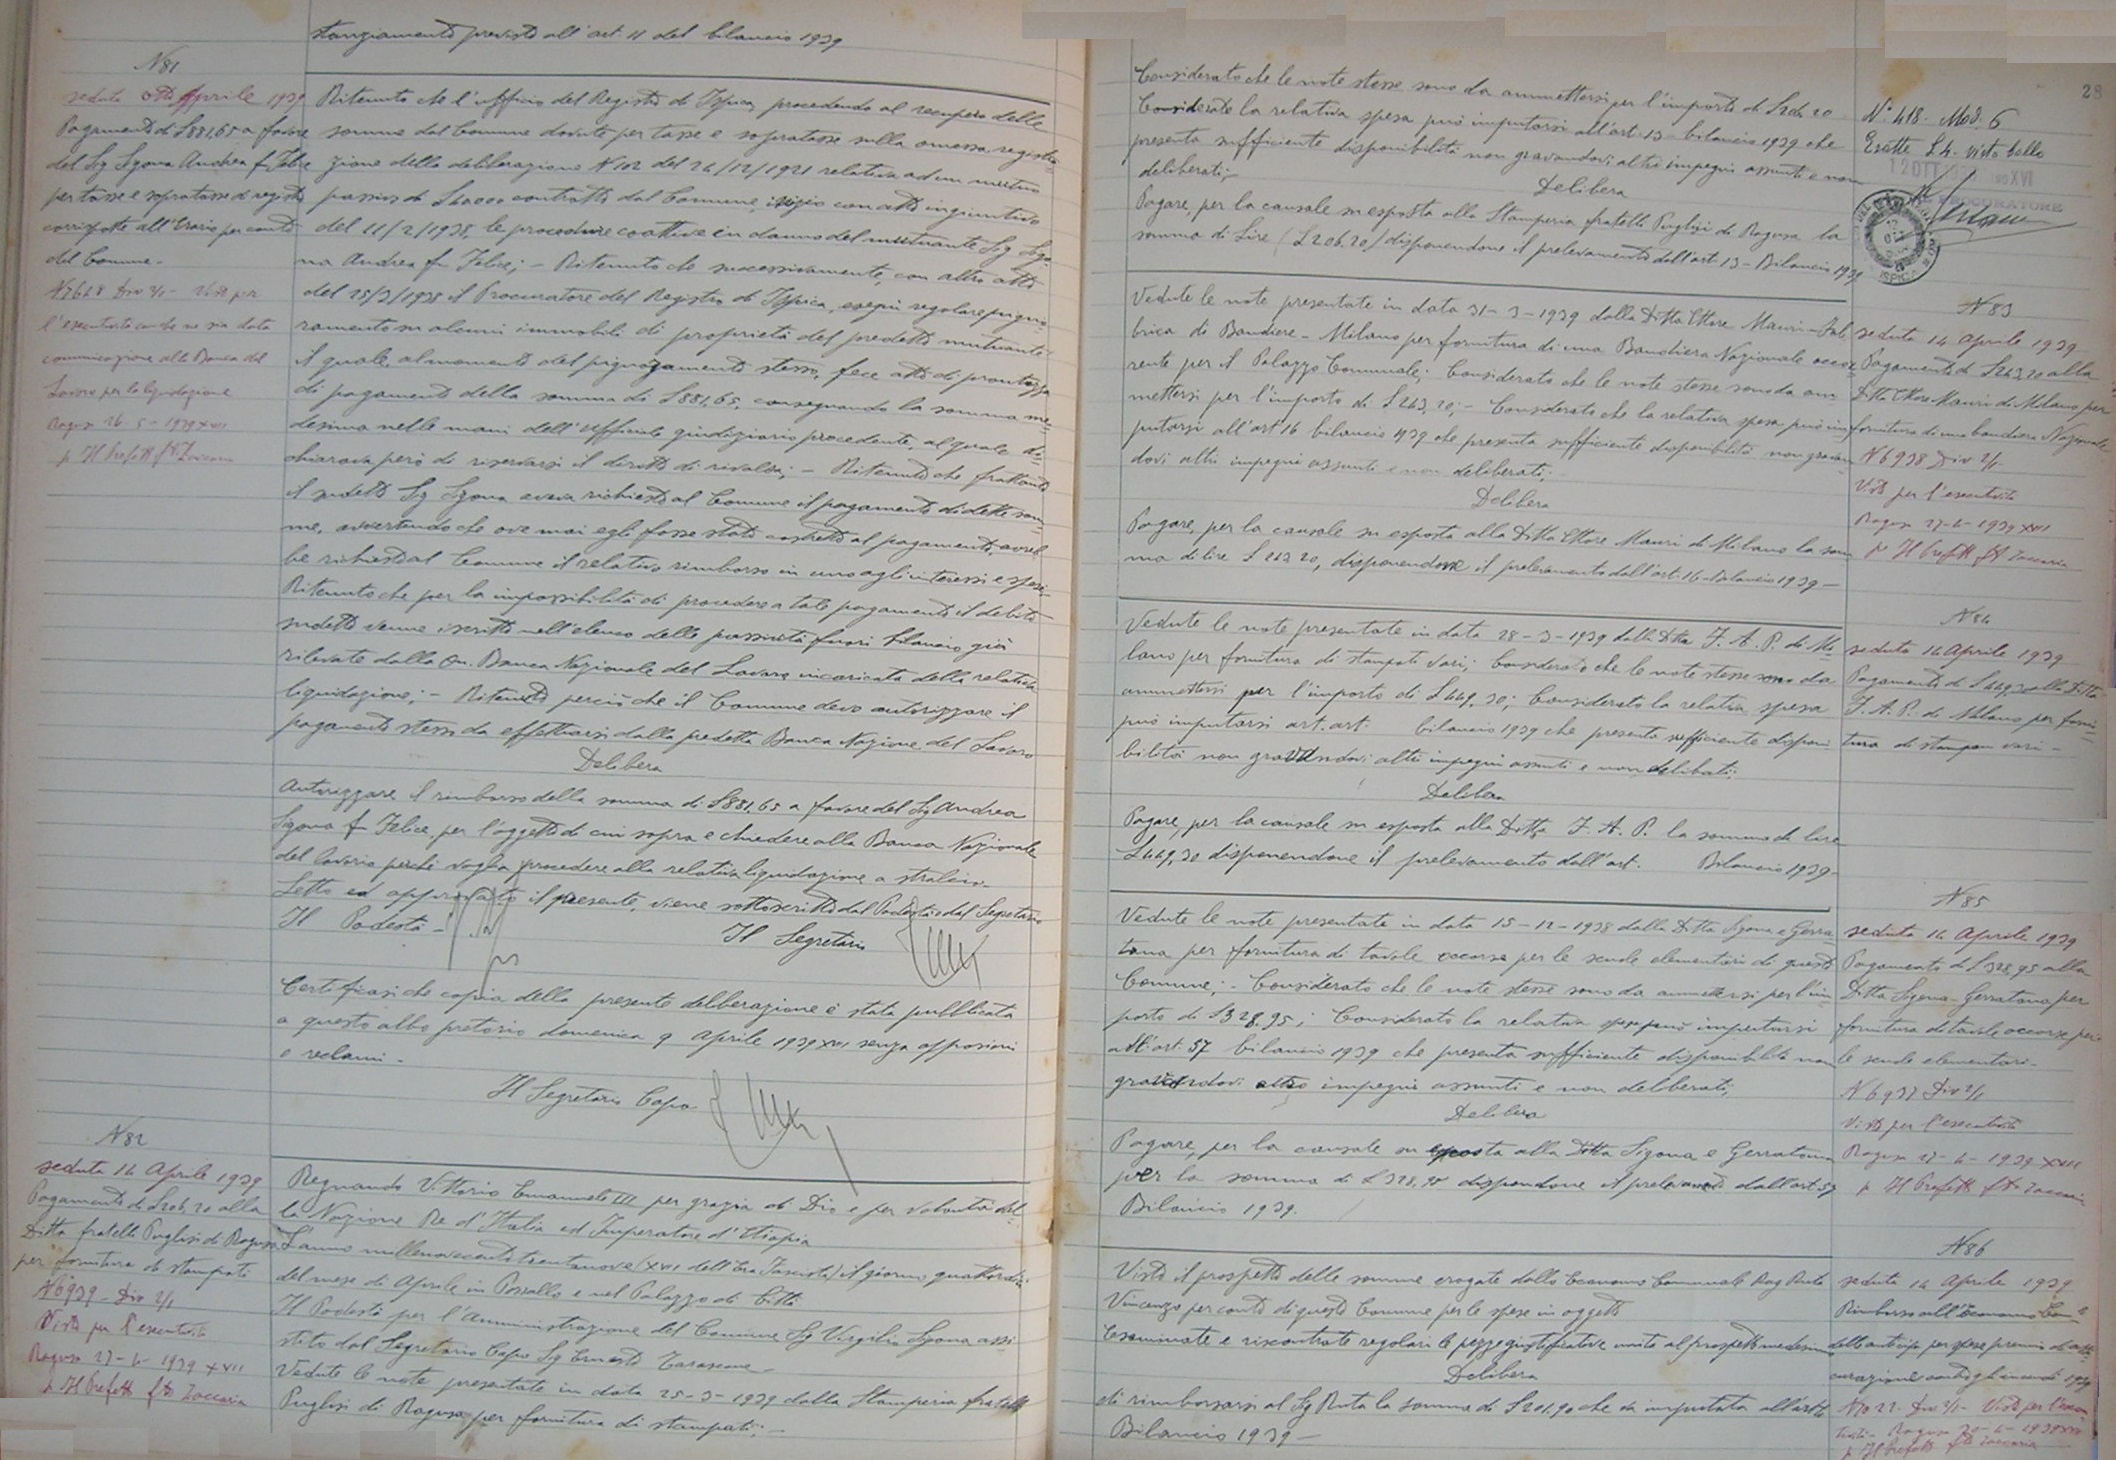 stanziamento previsto all'art. 11 del bilancio 1939
N 81
seduta otto Aprile 1939
Pagamento di £881,65 a favore
del Sig Sgona Andrea f Felice
per tasse e sopratasse di registro
corrisposte all'Erario per conto
del Comune.-
N 7648 Div 2/1 - Visto per
l'esecutorietà
comunicazione alla Banca del
Lavoro per la liquidazione
Ragusa 26-5-1939 XVII
p Il Prefetto fto Zaccaria
Ritenuto che l'ufficio del Registro di Ispica, procedendo al recupero delle
somme dal Comune dovute per tasse e sopratasse sulla omessa registra-
zione della deliberazione N 102 del 24/12/1921 relativa ad un mutuo
passivo di £40000 contratto dal Comune, iniziò con atto ingiuntivo
del 11/2/1938, le procedure coattive in danno del mutuante Sig Sgo-
na Andrea fu Felice; - Ritenuto che successivamente, con altro atto
del 25/3/1938 il Procuratore del Registro di Ispica, eseguì regolare pigno-
ramento su alcuni immobili di proprietà del predetto mutuante
il quale, al momento del pignoramento stesso, fece atto di prontezza
di pagamento della somma di £881,65, consegnando la somma me-
desima nelle mani dell'ufficiale giudiziario procedente, al quale di-
chiarava però di riservarsi il diritto di rivalsa; - Ritenuto che frattanto
il sudetto Sig Sgona aveva richiesto al Comune il pagamento di dette som-
me, avvertendo che ove mai egli fosse stato costretto al pagamento, avreb-
be richiesto al Comune il relativo rimborso in uno agli interessi e spese.
Ritenuto che per la impossibilità di procedere a tale pagamento il debito
sudetto venne iscritto nell'elenco delle passività fuori bilancio già
rilevate dalla On. Banca Nazionale del Lavoro incaricata della relativa
liquidazione; - Ritenuto perciò che il Comune deve autorizzare il
pagamento stesso da effettuarsi dalla predetta Banca Nazione del Lavoro
Delibera
Autorizzare il rimborso della somma di £881,65 a favore del Sig Andrea
Sgona f Felice, per l'oggetto di cui sopra e chiedere alla Banca Nazionale
del lavoro perchè voglia procedere alla relativa liquidazione a stralcio.
Letto ed approvato il presente, viene sottoscritto dal Podestà e dal Segretario
Il Podestà
Il Segretario
Certificasi che copia della presente deliberazione è stata pubblicata
a questo albo pretorio domenica 9 Aprile 1939 XVII senza opposizioni
o reclami.
Il Segretario Capo
N 82
seduta 14 Aprile 1939
Pagamento di £206.20 alla
Ditta fratelli Puglisi di Ragusa
per fornitura di stampati
N 6939 - Div 2/1
Visto per l'esecutorietà
Ragusa 27-4-1939 XVII
p Il Prefetto fto Zaccaria
Regnando Vittorio Emanuele III per grazia di Dio e per volontà del-
la Nazione Re d'Italia ed Imperatore d'Etiopia
L'anno millenovecentotrentanove (XVII dell'Era Fascista) il giorno quattordici
del mese di Aprile in Pozzallo e nel Palazzo di Città
Il Podestà per l'Amministrazione del Comune Sig Virgilio Sgona assi-
stito dal Segretario Capo Sig Ernesto Tarascone -
Vedute le note presentate in data 25-3-1939 dalla Stamperia fratelli
Puglisi di Ragusa per fornitura di stampati; -
28
Considerato che le note stesse sono da ammettersi per l'importo di £206.20
Considerato la relativa spesa può imputarsi all'art. 13 - bilancio 1939 che
presenta sufficiente disponibilità non gravandovi altri impegni assunti e non
deliberati; -
Delibera
Pagare, per la causale su esposta alla Stamperia fratelli Puglisi di Ragusa la
somma di Lire (£206.20) disponendone il prelevamento dell'art. 13 - Bilancio 1939
N° 418 Mod. 6
Esatte £4. visto bollo
12 OTT XVI
PROCURATORE
ISPICA
Vedute le note presentate in data 31-3-1939 dalla Ditta Ettore Mauri - Fab-
brica di Bandiere - Milano per fornitura di una Bandiera Nazionale occor-
rente per il Palazzo Comunale; Considerato che le note stesse sono da am-
mettersi per l'importo di £243,20; - Considerato che la relativa spesa può im-
putarsi all'art 16 bilancio 1939 che presenta sufficiente disponibilità non gravan-
dovi altri impegni assunti e non deliberati;
Delibera
Pagare, per la causale su esposta alla Ditta Ettore Mauri di Milano la som-
ma di lire £ 243.20, disponendone il prelevamento dall'art. 16 - Bilancio 1939 -
N 83
seduta 14 Aprile 1939
Pagamento di £243,20 alla
Ditta Ettore Mauri di Milano per
fornitura di una bandiera Nazionale
N 6938 Div 2/1
Visto per l'esecutorietà
Ragusa 27-4-1939 XVII
p Il Prefetto fto Zaccaria
Vedute le note presentate in data 28-3-1939 dalla Ditta I. A. P. di Mi-
lano per fornitura di stampati vari; Considerato che le note stesse sono da
ammettersi per l'importo di £449,30; Considerato la relativa spesa
può imputarsi art. art. bilancio 1939 che presenta sufficiente disponi-
bilità non gravandovi altri impegni assunti e non delibati;
Delibera
Pagare, per la causale su esposta alla Ditta I. A. P. la somma di lire
£449,30 disponendone il prelevamento dall'art. Bilancio 1939-
N 84
seduta 14 Aprile 1939
Pagamento di £449,30 alla Ditta
I. A. P. di Milano per forni-
tura di stampati vari -
Vedute le note presentate in data 15-12-1938 dalla Ditta Sgona e Gerra-
tana per fornitura di tavole occorse per le scuole elementari di questo
Comune; - Considerato che le note stesse sono da ammettersi per l'im-
porto di £328,95; Considerato la relativa spesa può imputarsi
all'art. 57 bilancio 1939 che presenta sufficiente disponibilità non
gravandovi altro impegni assunti e non deliberati;
Delibera
Pagare, per la causale su esposta alla Ditta Sigona e Gerratana
per la somma di £328,95 disponendone il prelevamento dall'art. 57
Bilancio 1939.
N 85
seduta 14 Aprile 1939
Pagamento di £328,95 alla
Ditta Sgona-Gerratana per
fornitura di tavole occorse per
le scuole elementari.
N 6937 Div 2/1
Visto per l'esecutorietà
Ragusa 27-4-1939 XVII
p Il Prefetto fto Zaccaria
Visto il prospetto delle somme erogate dallo Economo Comunale Rag Ruta
Vincenzo per conto di questo Comune per le spese in oggetto
Esaminate e riscontrate regolari le pezze giustificative unite al prospetto medesimo
Delibera
di rimborsarsi al Sig Ruta la somma di £201.90 che va imputata all'art
Bilancio 1939 -
N 86
seduta 14 Aprile 1939
Rimborso all'Economo Com-
delle anticip per spese premio di assi-
curazione contro gli incendi 1939
N 7022 Div 2/1 - Visto per l'esecu-
Ragusa 1939 XVII
p Il Prefetto fto Zaccaria